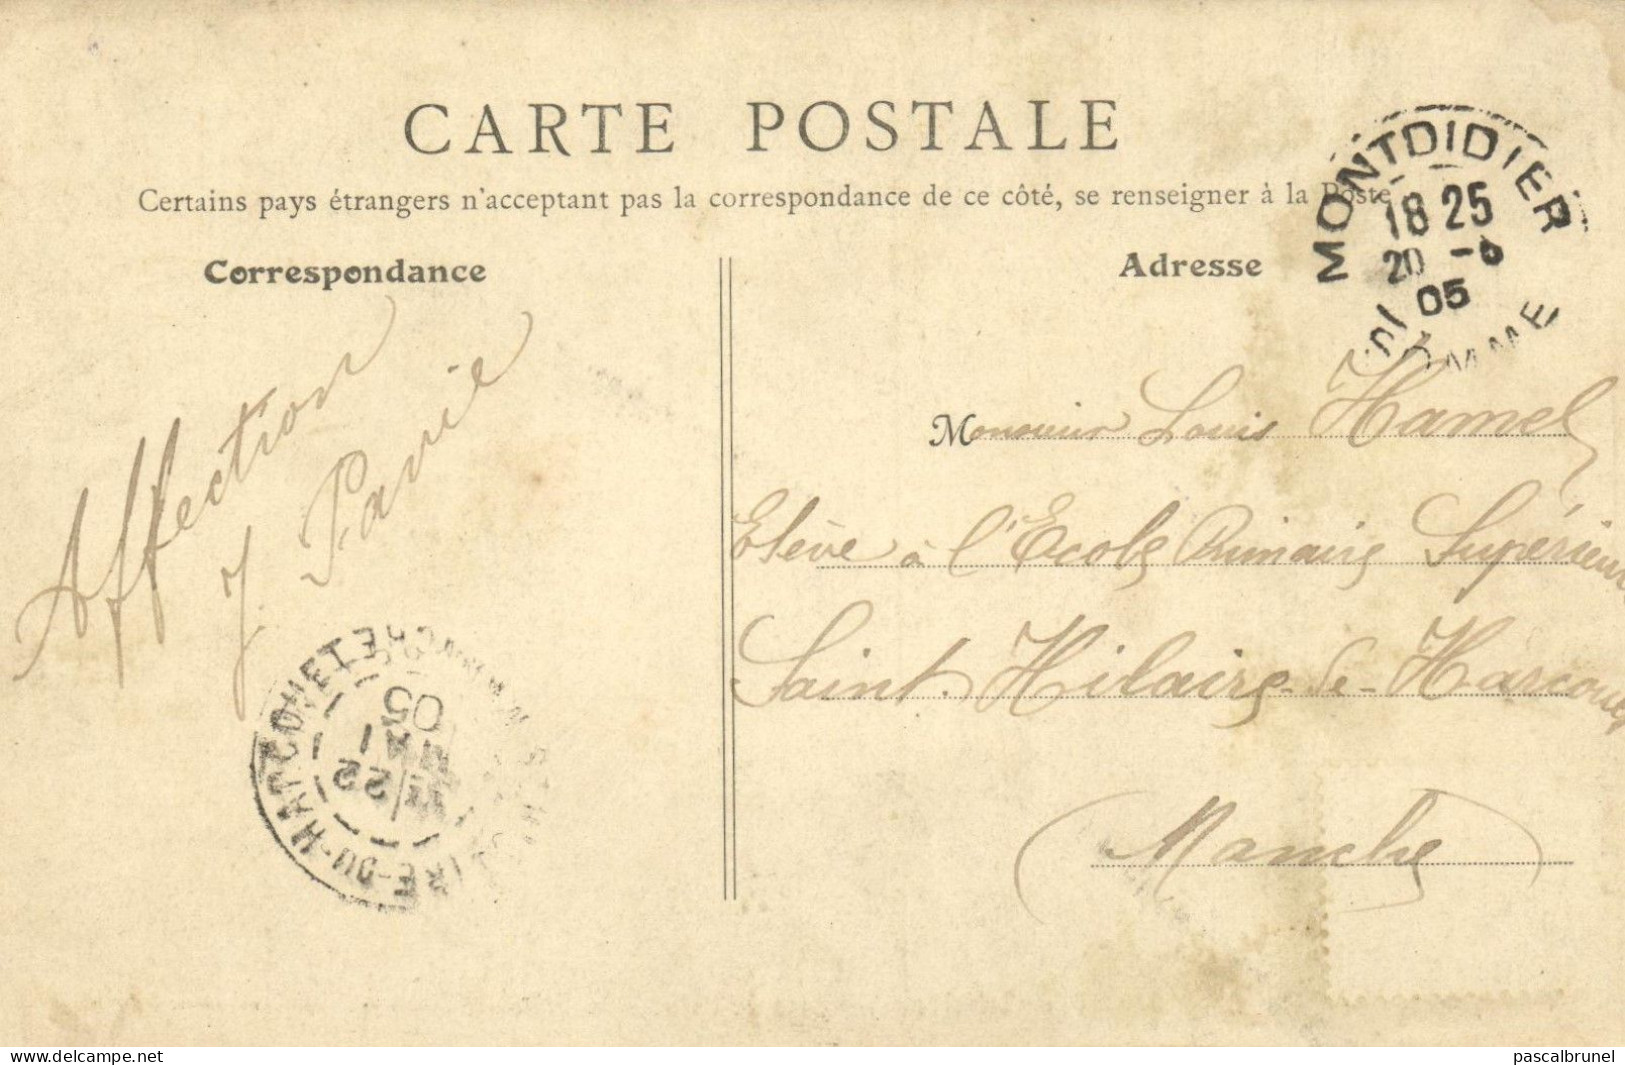 CARTE POSTALE
Certains pays étrangers n'acceptant pas la correspondance de ce côté, se renseigner à la Poste
Correspondance
Adresse
MONTDIDIER
18 25
20 -
05
SOMME
Affection
J. Pavie
Monsieur Louis Hamel
Elève à l'Ecole Primaire Supérieure
Saint. Hilaire-de-Harcouet
(Manche)
HILAIRE-DU-HARCOUET
MANCHE
22
05
www.delcampe.net
pascalbrunel